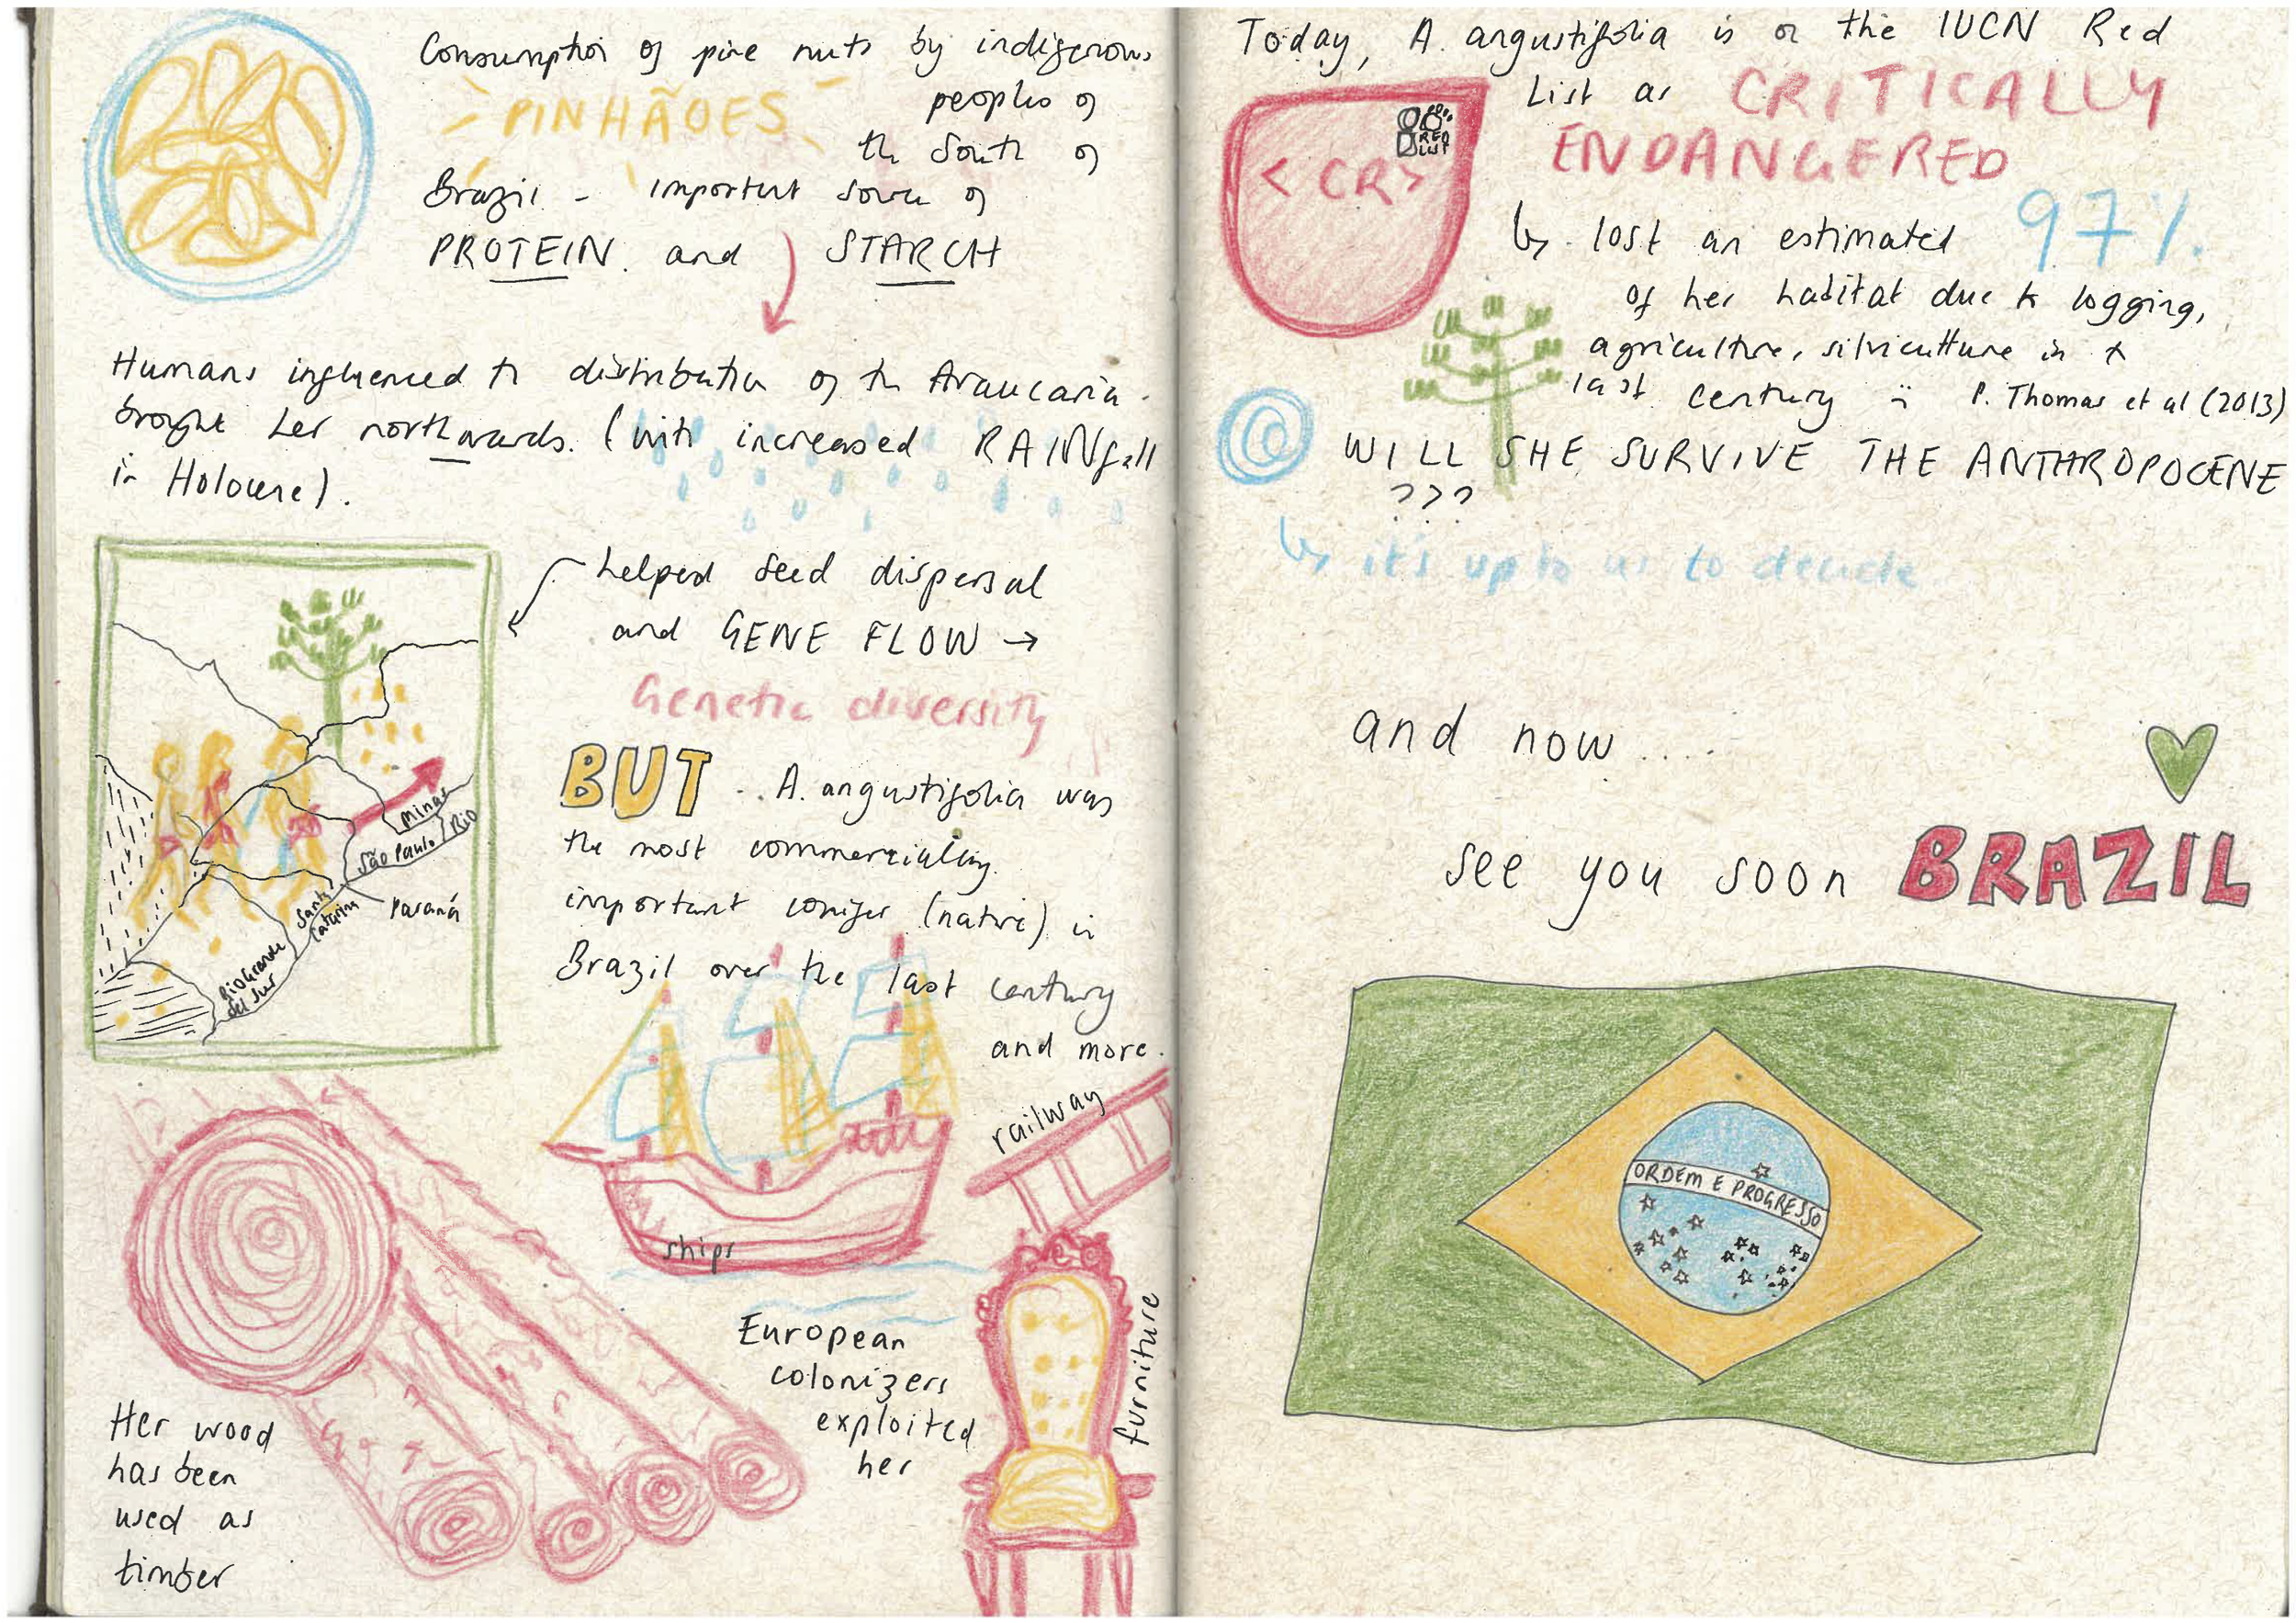 Consumption of pine nuts by indigenous
PINHÃOES
peoples of
the South of
Brazil - important source of
PROTEIN. and STARCH
Humans influenced th distribution of th Araucaria.
brought her northwards. (with increased RAINfall
in Holocene).
helped seed dispersal
and GENE FLOW →
Genetic diversity
BUT ... A. angustifolia was
the most commercially
important conifer (native) in
Brazil over the last century
and more.
Minas
Rio
São Paulo
Paraná
Santa
Catarina
Rio Grande
del Sur
railway
ships
furniture
European
colonizers
exploited
her
Her wood
has been
used as
timber
Today, A. angustifolia is on the IUCN Red
List as CRITICALLY
ENDANGERED
RED
LIST
< CR >
↳ lost an estimated 97%
of her habitat due to logging,
agriculture, silviculture in
last century P. Thomas et al (2013)
WILL SHE SURVIVE THE ANTHROPOCENE
???
↳ it's up to us to decide
and now....
see you soon BRAZIL
ORDEM E PROGRESSO